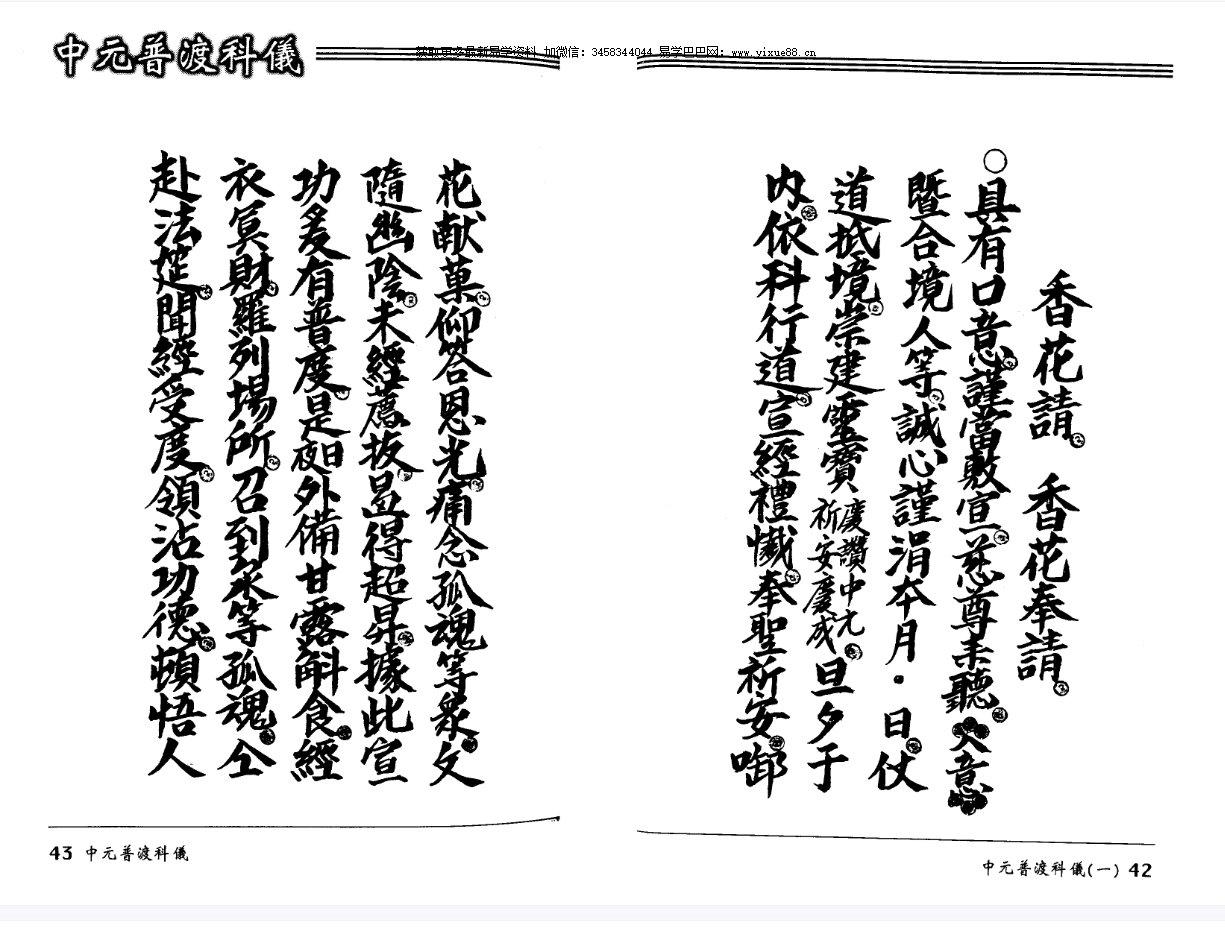 中元普渡科儀
获取更多最新易学资料 加微信：3458344044 易学巴巴网：www.yixue88.cn
香花請 香花奉請
○具有口意謹當敷宣慈尊未聽入意
暨合境人等誠心謹涓本月•日仗
道抵境崇建靈寶慶讚中元祈安慶成旦夕于
內依科行道宣經禮懺奉聖祈安啣
花献菓仰答恩光痛念孤魂等衆文
隨幽陰未經薦拔曷得超昇據此宣
功爰有普度是日夜外備甘露斛食經
衣冥財羅列場所召到家等孤魂仝
赴法筵聞經受度領沾功德頓悟人
中元普渡科儀(一) 42
43 中元普渡科儀